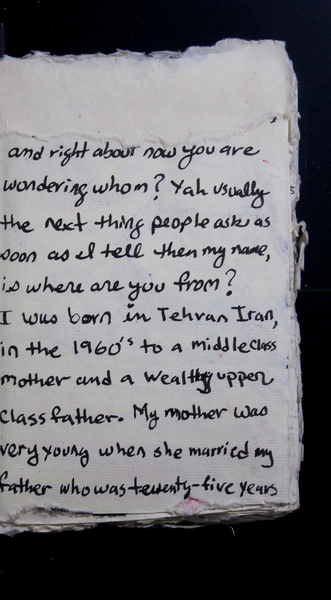 and right about now you are
wondering whom? Yah usually
the next thing people ask as
soon as I tell then my name,
is where are you from?
I was born in Tehran Iran,
in the 1960's to a middleclass
mother and a wealthy upper
class father. My mother was
very young when she married my
father who was twenty-five years